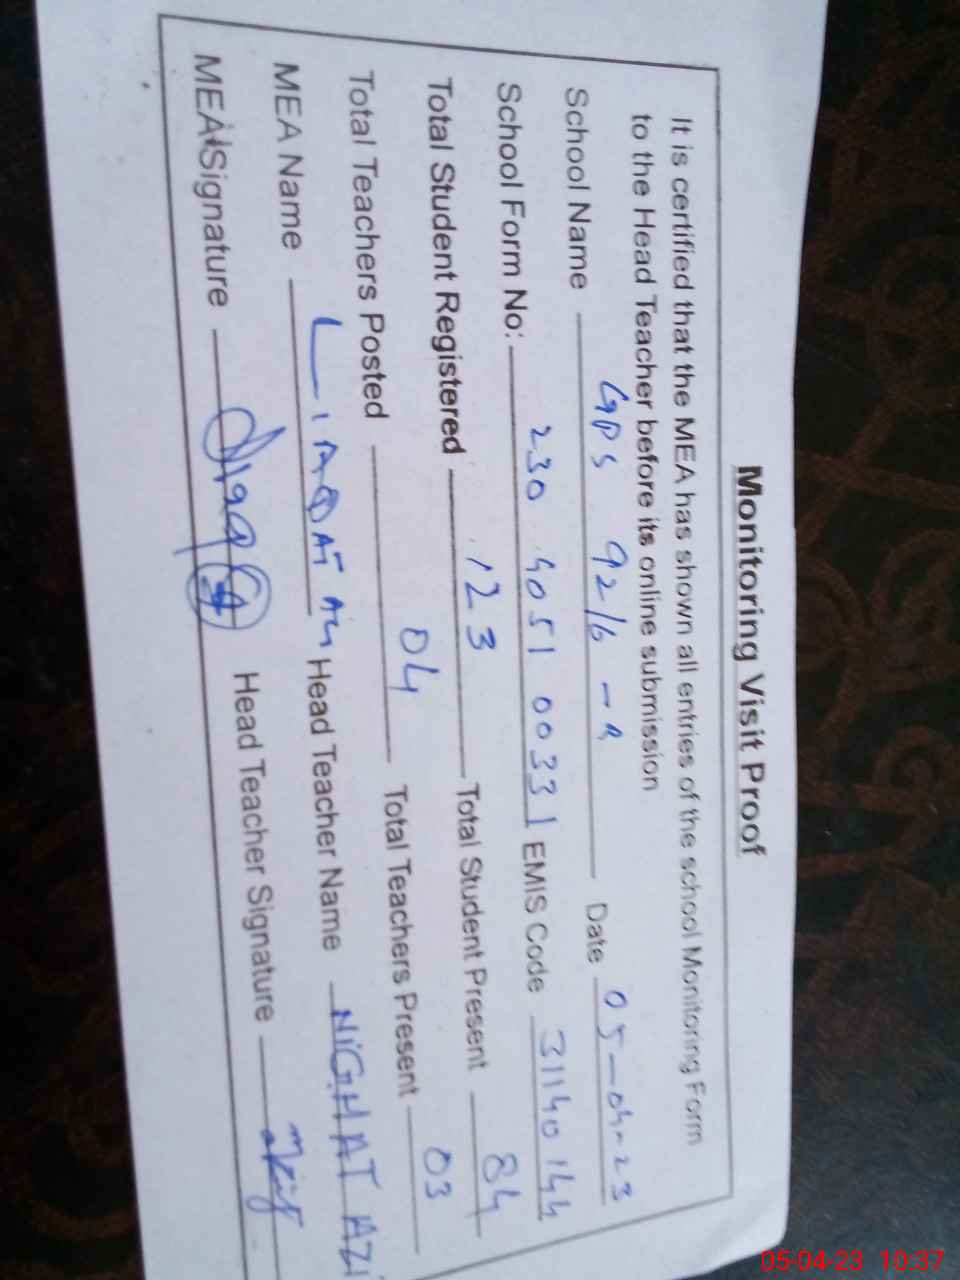 Monitoring Visit Proof
It is certified that the MEA has shown all entries of the school Monitoring Form
to the Head Teacher before its online submission
School Name GPS 92/6-R Date 05-04-23
School Form No: 230 4051 00331 EMIS Code 31140144
Total Student Registered 123 Total Student Present 84
Total Teachers Posted 04 Total Teachers Present 03
MEA Name LIAQAT ALI Head Teacher Name NIGHAT AZI
MEA Signature Head Teacher Signature
05-04-23 10:37